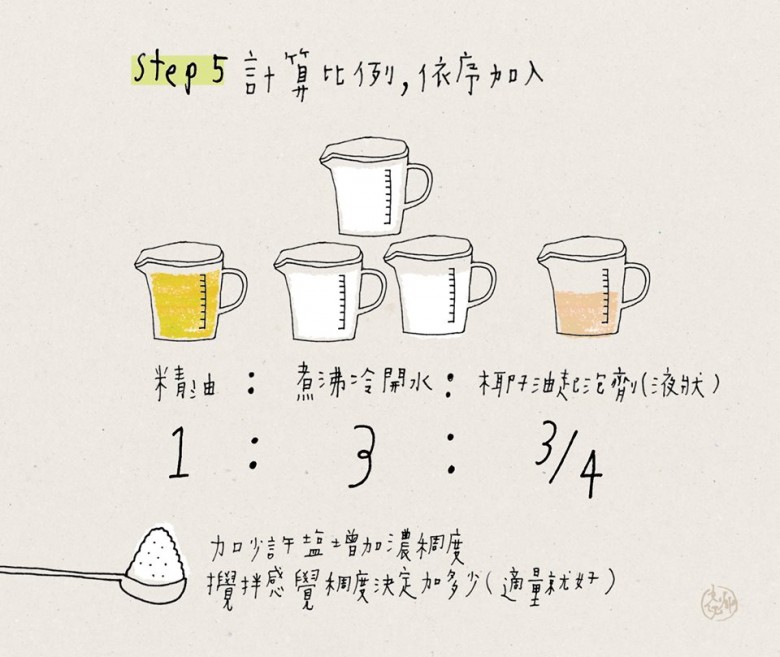 Step 5 計算比例,依序加入
精油 : 煮沸冷開水 : 椰子油起泡劑(液狀)
1 : 3 : 3/4
加少許塩增加濃稠度
攪拌感覺稠度決定加多少(適量就好)